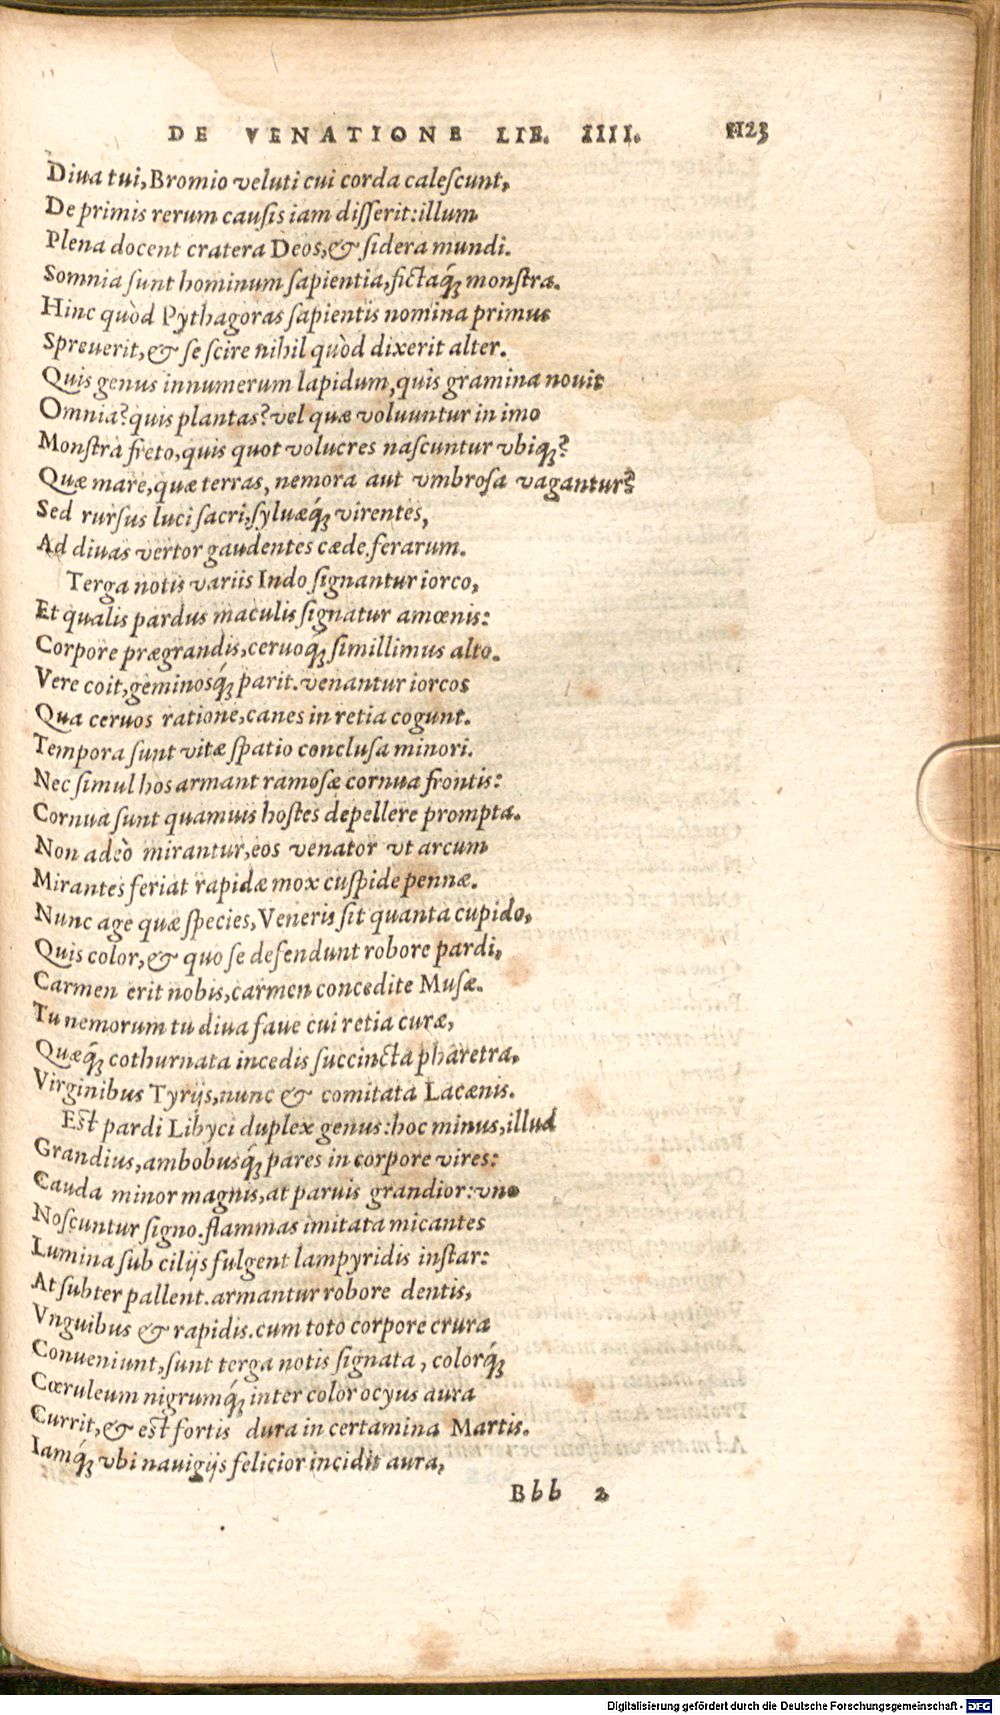 DE VENATIONE LIB. IIII. 1123
Diua tui, Bromio veluti cui corda calescunt,
De primis rerum causis iam disserit: illum
Plena docent cratera Deos, & sidera mundi.
Somnia sunt hominum sapientia, fictaq́; monstra.
Hinc quòd Pythagoras sapientis nomina primus
Spreuerit, & se scire nihil quòd dixerit alter.
Quis genus innumerum lapidum, quis gramina nouit
Omnia? quis plantas? vel quæ voluuntur in imo
Monstra freto, quis quot volucres nascuntur vbiq;?
Quæ mare, quæ terras, nemora aut vmbrosa vagantur?
Sed rursus luci sacri, syluæq́; virentes,
Ad diuas vertor gaudentes cæde ferarum.
Terga notis variis Indo signantur iorco,
Et qualis pardus maculis signatur amœnis:
Corpore prægrandis, ceruoq́; simillimus alto.
Vere coit, geminosq́; parit. venantur iorcos
Qua ceruos ratione, canes in retia cogunt.
Tempora sunt vitæ spatio conclusa minori.
Nec simul hos armant ramosæ cornua frontis:
Cornua sunt quamuis hostes depellere prompta.
Non adeò mirantur, eos venator vt arcum
Mirantes feriat rapidæ mox cuspide pennæ.
Nunc age quæ species, Veneris sit quanta cupido,
Quis color, & quo se defendunt robore pardi,
Carmen erit nobis, carmen concedite Musæ.
Tu nemorum tu diua faue cui retia curæ,
Quæq́; cothurnata incedis succincta pharetra,
Virginibus Tyrijs, nunc & comitata Lacænis.
Est pardi Libyci duplex genus: hoc minus, illud
Grandius, ambobusq́; pares in corpore vires:
Cauda minor magnis, at paruis grandior: vno
Noscuntur signo. flammas imitata micantes
Lumina sub cilijs fulgent lampyridis instar:
At subter pallent. armantur robore dentis,
Vnguibus & rapidis. cum toto corpore crura
Conueniunt, sunt terga notis signata, colorq́;
Cœruleum nigrumq́; inter color ocyus aura
Currit, & est fortis dura in certamina Martis.
Iamq́; vbi nauigijs felicior incidit aura,
Bbb 2
Digitalisierung gefördert durch die Deutsche Forschungsgemeinschaft - DFG